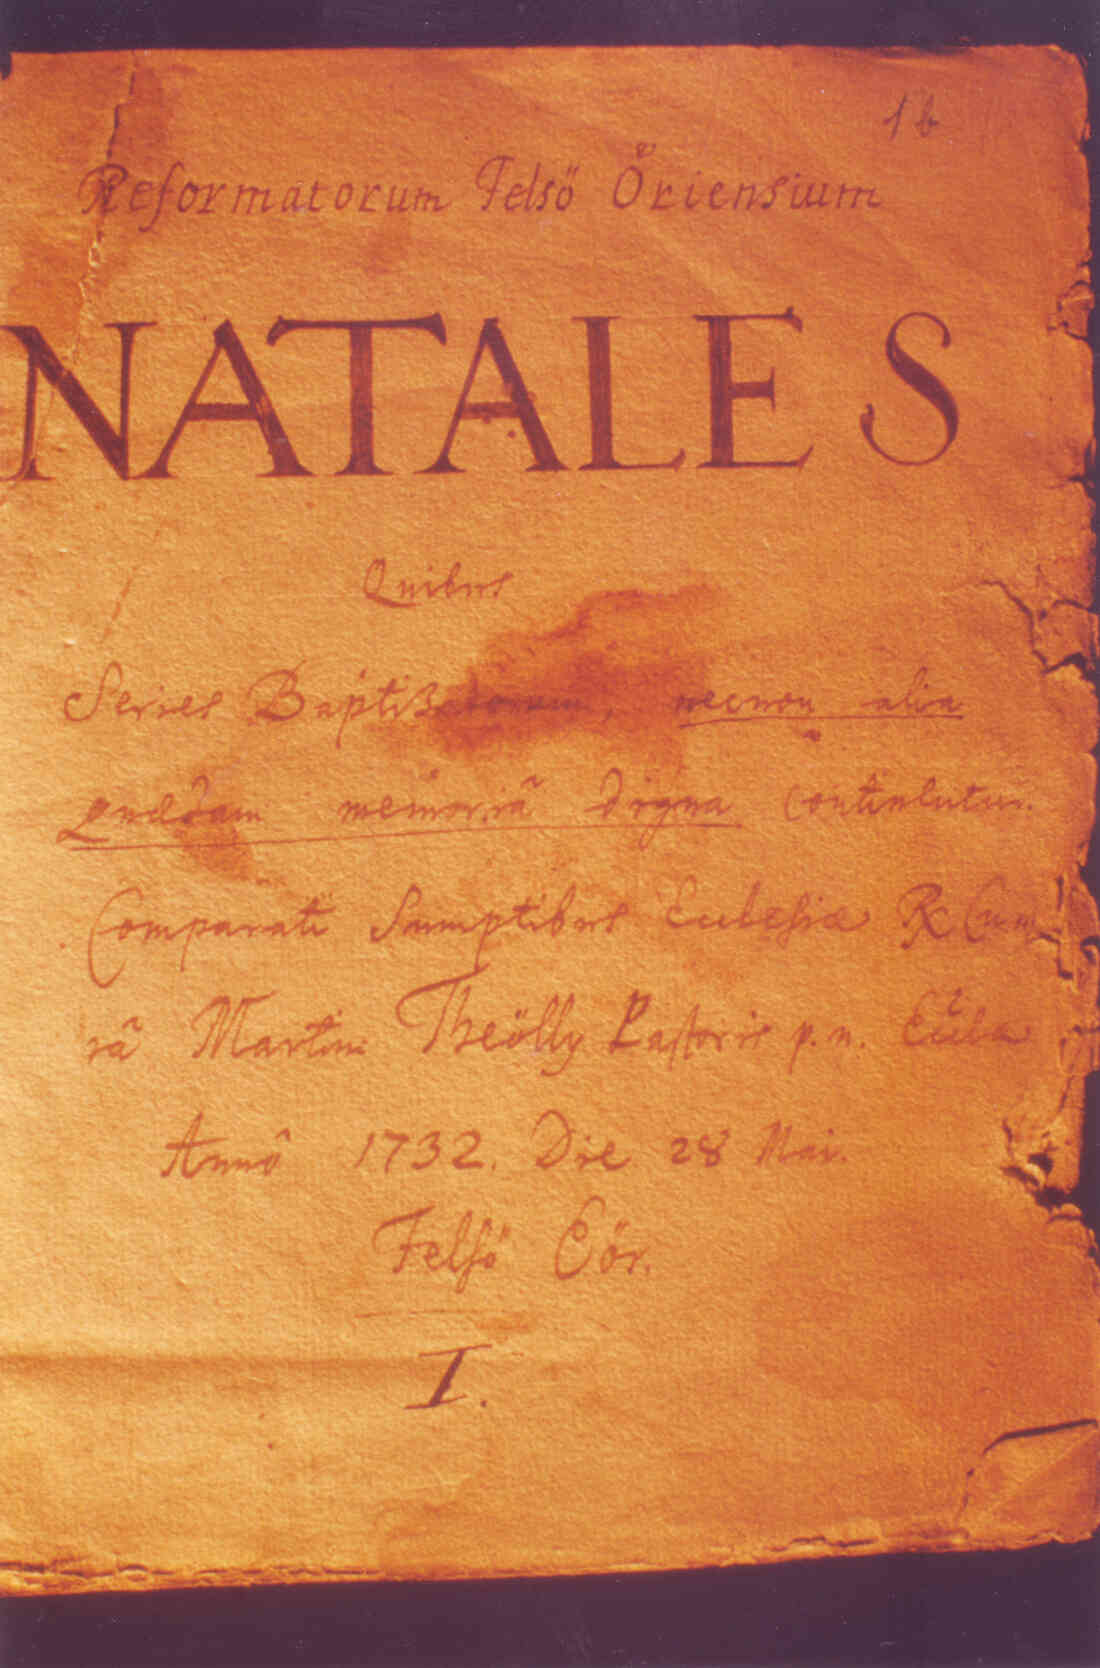 1 b
Reformatorum Felsö Öriensium
NATALES
Quibus
Series Baptizatorum, necnon alia
quædam memoriâ digna continentur.
Comparati Sumptibus Ecclesiæ R
râ Martini Theölly Pastoris p. n.
Annô 1732. Die 28 Mai.
Felsö Eör.
I.